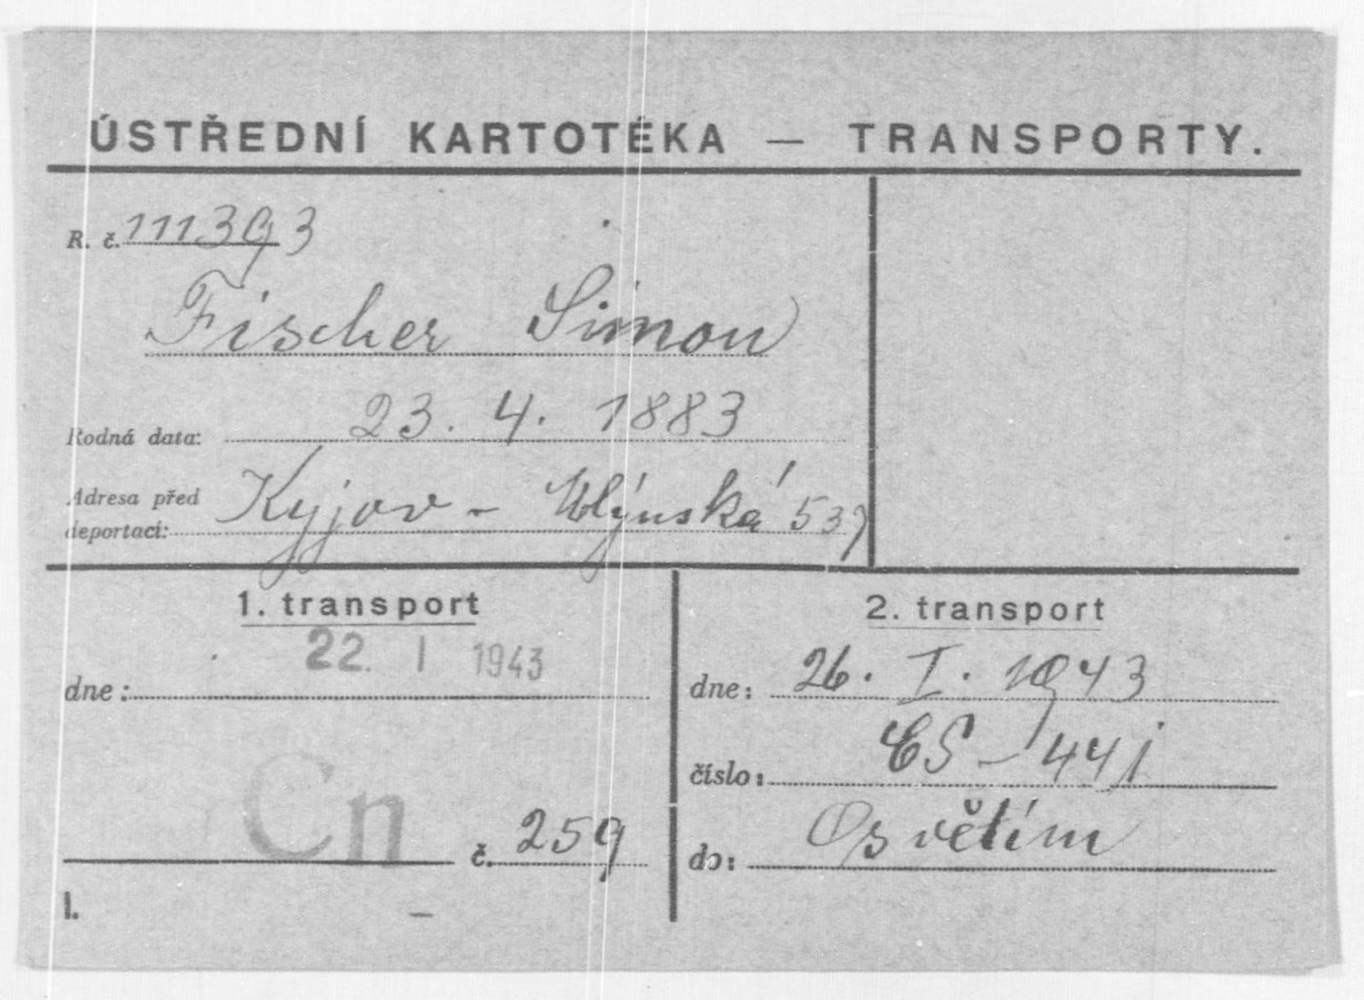 ÚSTŘEDNÍ KARTOTÉKA — TRANSPORTY.
R. č. 111393
Fischer Simon
Rodná data: 23. 4. 1883
Adresa před deportací: Kyjov - Mlýnská 537
1. transport
22. I 1943
dne:
Cn č. 259
1.
2. transport
dne: 26. I. 1943
číslo: CS - 441
do: Osvětím